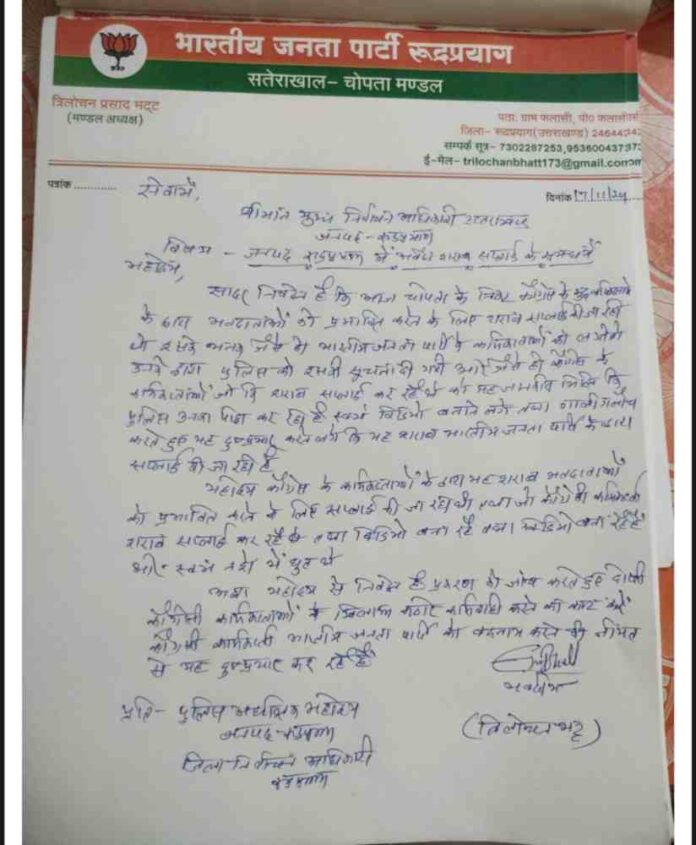 भारतीय जनता पार्टी रूद्रप्रयाग
सतेराखाल- चोपता मण्डल
त्रिलोचन प्रसाद भट्ट
(मण्डल अध्यक्ष)
पता: ग्राम फलासी, पो० फलासी
जिला- रूद्रप्रयाग(उत्तराखण्ड)
सम्पर्क सूत्र- 7302287253,9536004373
ई-मेल- trilochanbhatt173@gmail.com
पत्रांक ............
दिनांक 17/11/24
सेवामें,
श्रीमान मुख्य निर्वाचन अधिकारी
जनपद-रूद्रप्रयाग
विषय - जनपद रूद्रप्रयाग में अवैध शराब सप्लाई के सम्बन्ध में
महोदय,
सादर निवेदन है कि आज चोपता के निकट कांग्रेस के कुछ
के द्वारा मतदाताओं को प्रभावित करने के लिए शराब सप्लाई की जा रही
थी इसकी भनक जैसे ही भारतीय जनता पार्टी के कार्यकर्ताओं को लगी तो
उनके द्वारा पुलिस को इसकी सूचना दी गयी और जैसे ही कांग्रेस के
कार्यकर्ताओं जो कि शराब सप्लाई कर रहे थे को यह कि
पुलिस उनका पीछा कर रही है स्वयं विडियो बनाने लगे तथा गाली गलौच
करते हुए यह दुष्प्रचार करने लगे कि यह शराब भारतीय जनता पार्टी के द्वारा
सप्लाई की जा रही है
महोदय कांग्रेस के कार्यकर्ताओं के द्वारा यह शराब मतदाताओं
को प्रभावित करने के लिए सप्लाई की जा रही थी तथा जो कांग्रेसी
शराब सप्लाई कर रहे थे तथा विडियो बना रहे तथा विडियो बना रहे है
और स्वयं नशे में धुत थे
अतः महोदय से निवेदन है प्रकरण की जांच करते हुए दोषी
कांग्रेसी कार्यकर्ताओं के खिलाफ कठोर कार्यवाही करने की
कांग्रेसी कार्यकर्ता भारतीय जनता पार्टी को बदनाम करने की नीयत
से यह दुष्प्रचार कर रहे है
भवदीय
(त्रिलोचन भट्ट)
प्रति- पुलिस अधीक्षक महोदय
जनपद रूद्रप्रयाग
जिला निर्वाचन अधिकारी
रूद्रप्रयाग